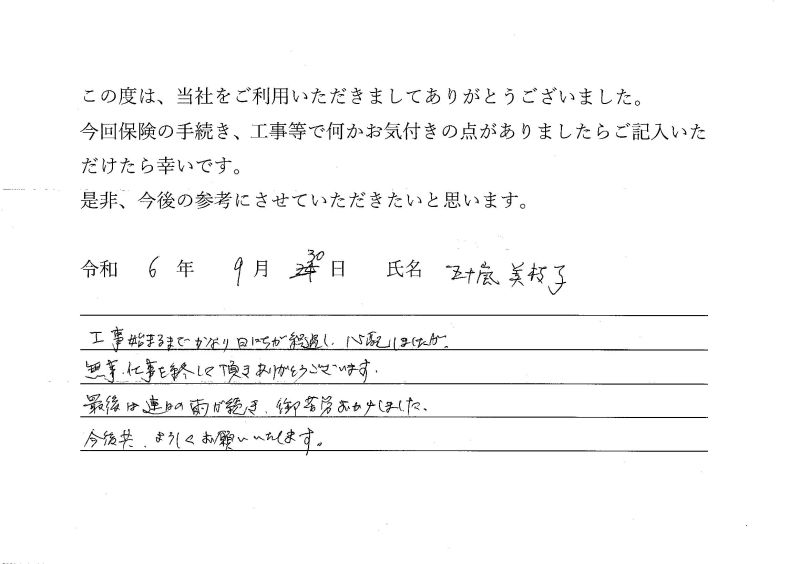 この度は、当社をご利用いただきましてありがとうございました。
今回保険の手続き、工事等で何かお気付きの点がありましたらご記入いた
だけたら幸いです。
是非、今後の参考にさせていただきたいと思います。
令和 6 年 9 月 30 日 氏名 五十嵐 美枝子
工事始まるまでかなり日にちが経過し、心配しましたが、
無事、仕事を終して頂きありがとうございます。
最後は連日の雨が続き、御苦労おかけしました。
今後共、よろしくお願いいたします。